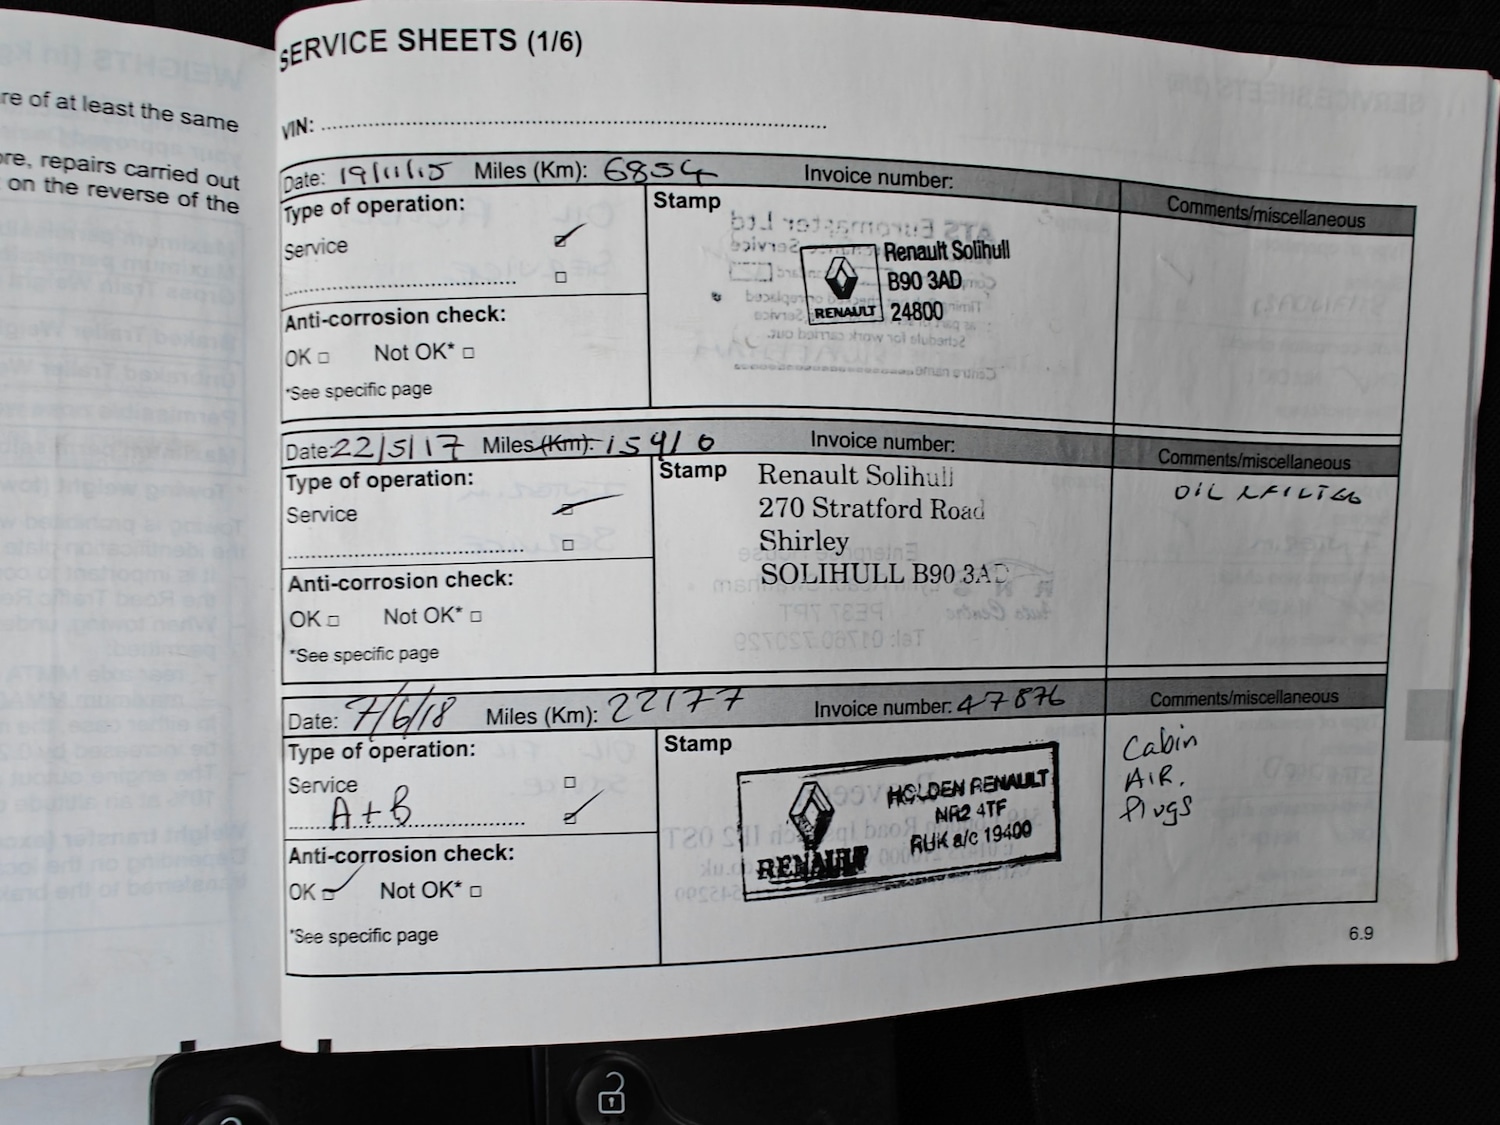 re of at least the same
ore, repairs carried out
on the reverse of the
SERVICE SHEETS (1/6)
VIN:
Date: 19/11/15 Miles (Km): 6854 Invoice number:
Type of operation:
Service
Anti-corrosion check:
OK Not OK*
*See specific page
Stamp
Renault Solihull
B90 3AD
24800
RENAULT
Comments/miscellaneous
Date: 22/5/17 Miles (Km): 15910 Invoice number:
Type of operation:
Service
Anti-corrosion check:
OK Not OK*
*See specific page
Stamp
Renault Solihull
270 Stratford Road
Shirley
SOLIHULL B90 3AD
Comments/miscellaneous
OIL & FILTER
Date: 7/6/18 Miles (Km): 22177 Invoice number: 47876
Type of operation:
Service
A+B
Anti-corrosion check:
OK Not OK*
*See specific page
Stamp
HOLDEN RENAULT
NR2 4TF
RUK a/c 19400
RENAULT
Comments/miscellaneous
Cabin
AIR.
Plugs
6.9